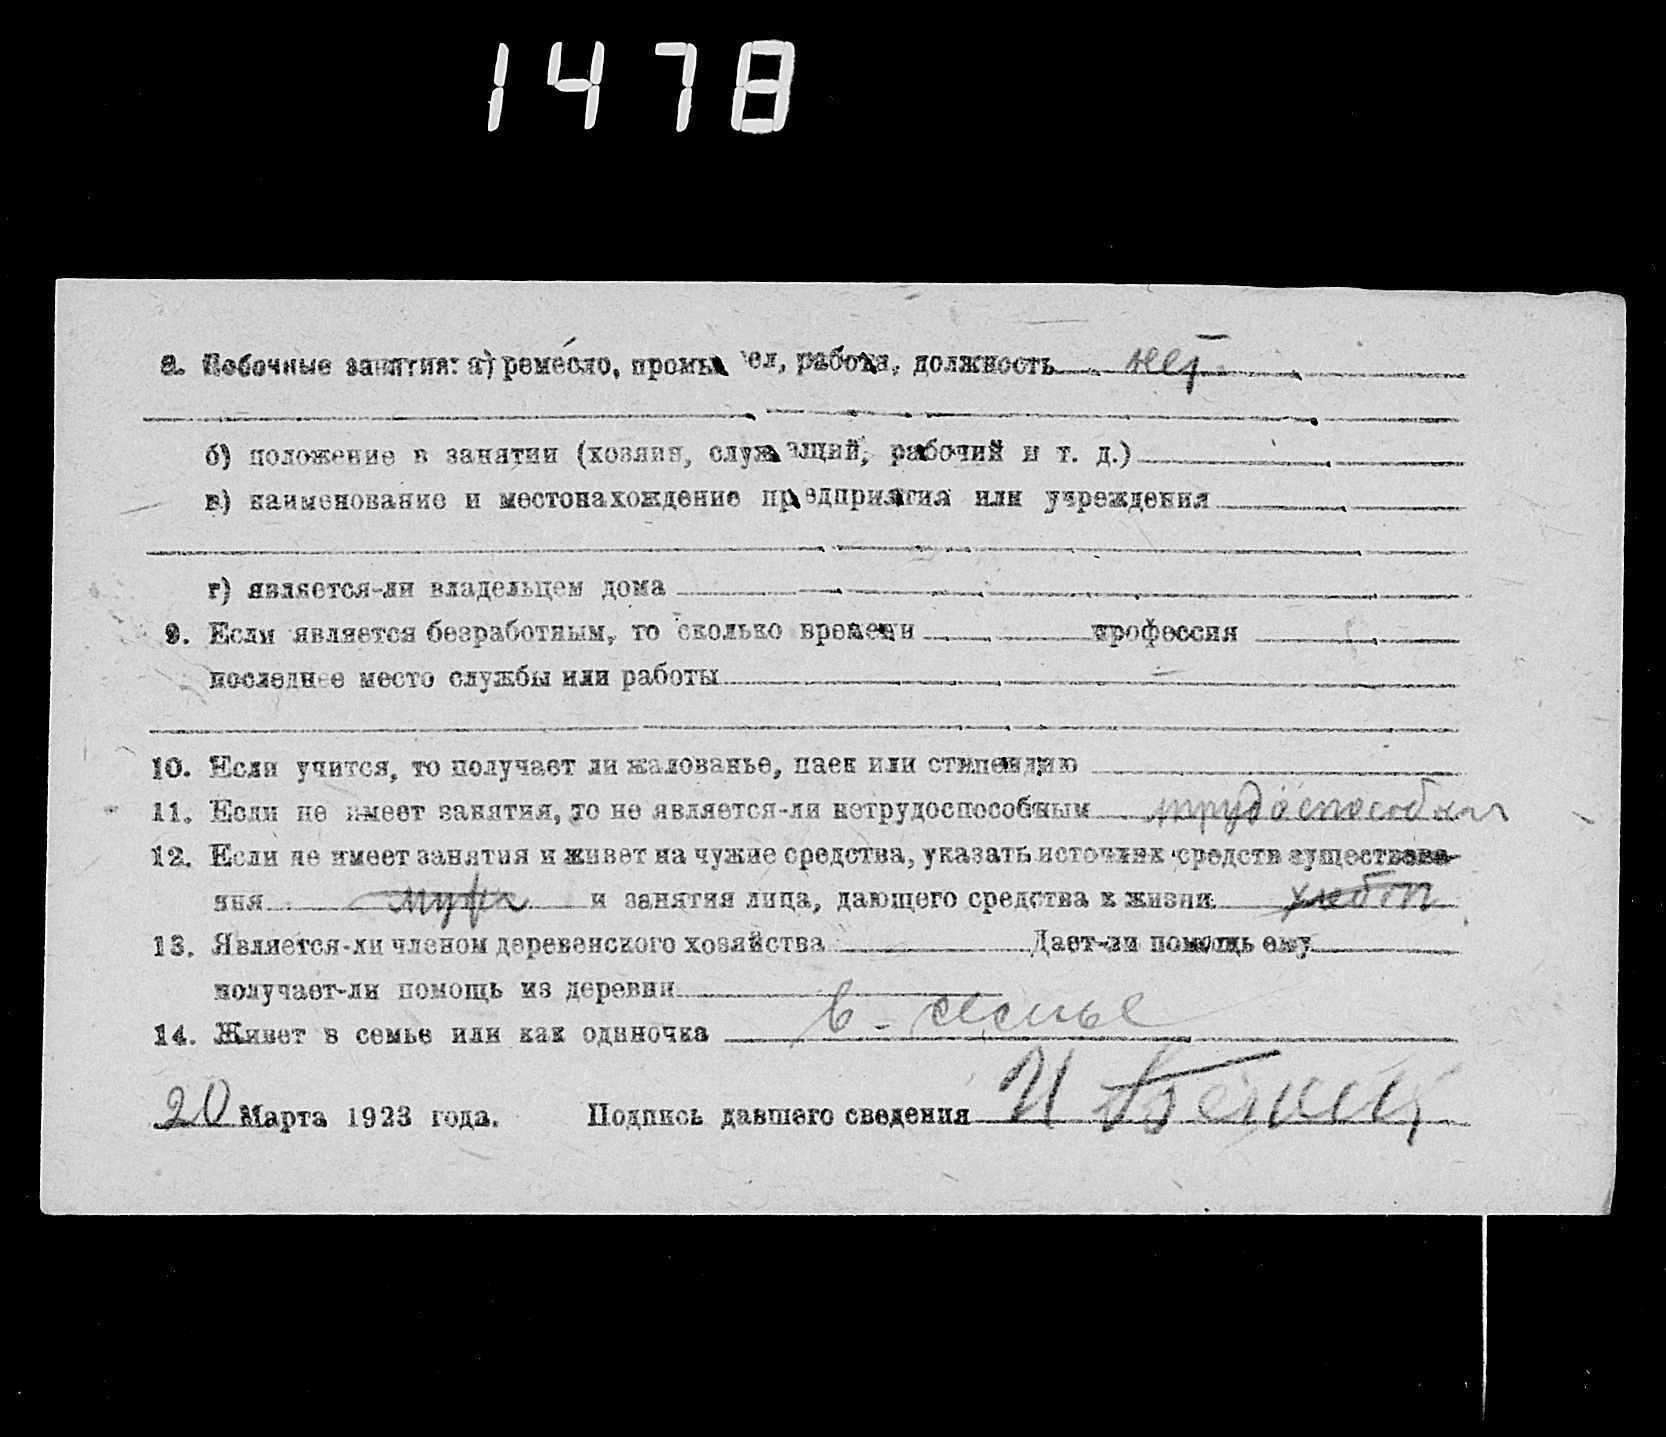 1478
8. Побочные занятия: а) ремесло, промысел, работа, должность нет
б) положение в занятии (хозяин, служащий, рабочий и т. д.)
в) наименование и местонахождение предприятия или учреждения
г) является-ли владельцем дома
9. Если является безработным, то сколько времени профессия
последнее место службы или работы
10. Если учится, то получает ли жалованье, паек или стипендию
11. Если не имеет занятия, то не является-ли нетрудоспособным трудоспособна
12. Если не имеет занятия и живет на чужие средства, указать источник средств существова-
ния и занятия лица, дающего средства к жизни
13. Является-ли членом деревенского хозяйства Дает-ли помощь ему
получает-ли помощь из деревни
14. Живет в семье или как одиночка в семье
20 Марта 1923 года. Подпись давшего сведения